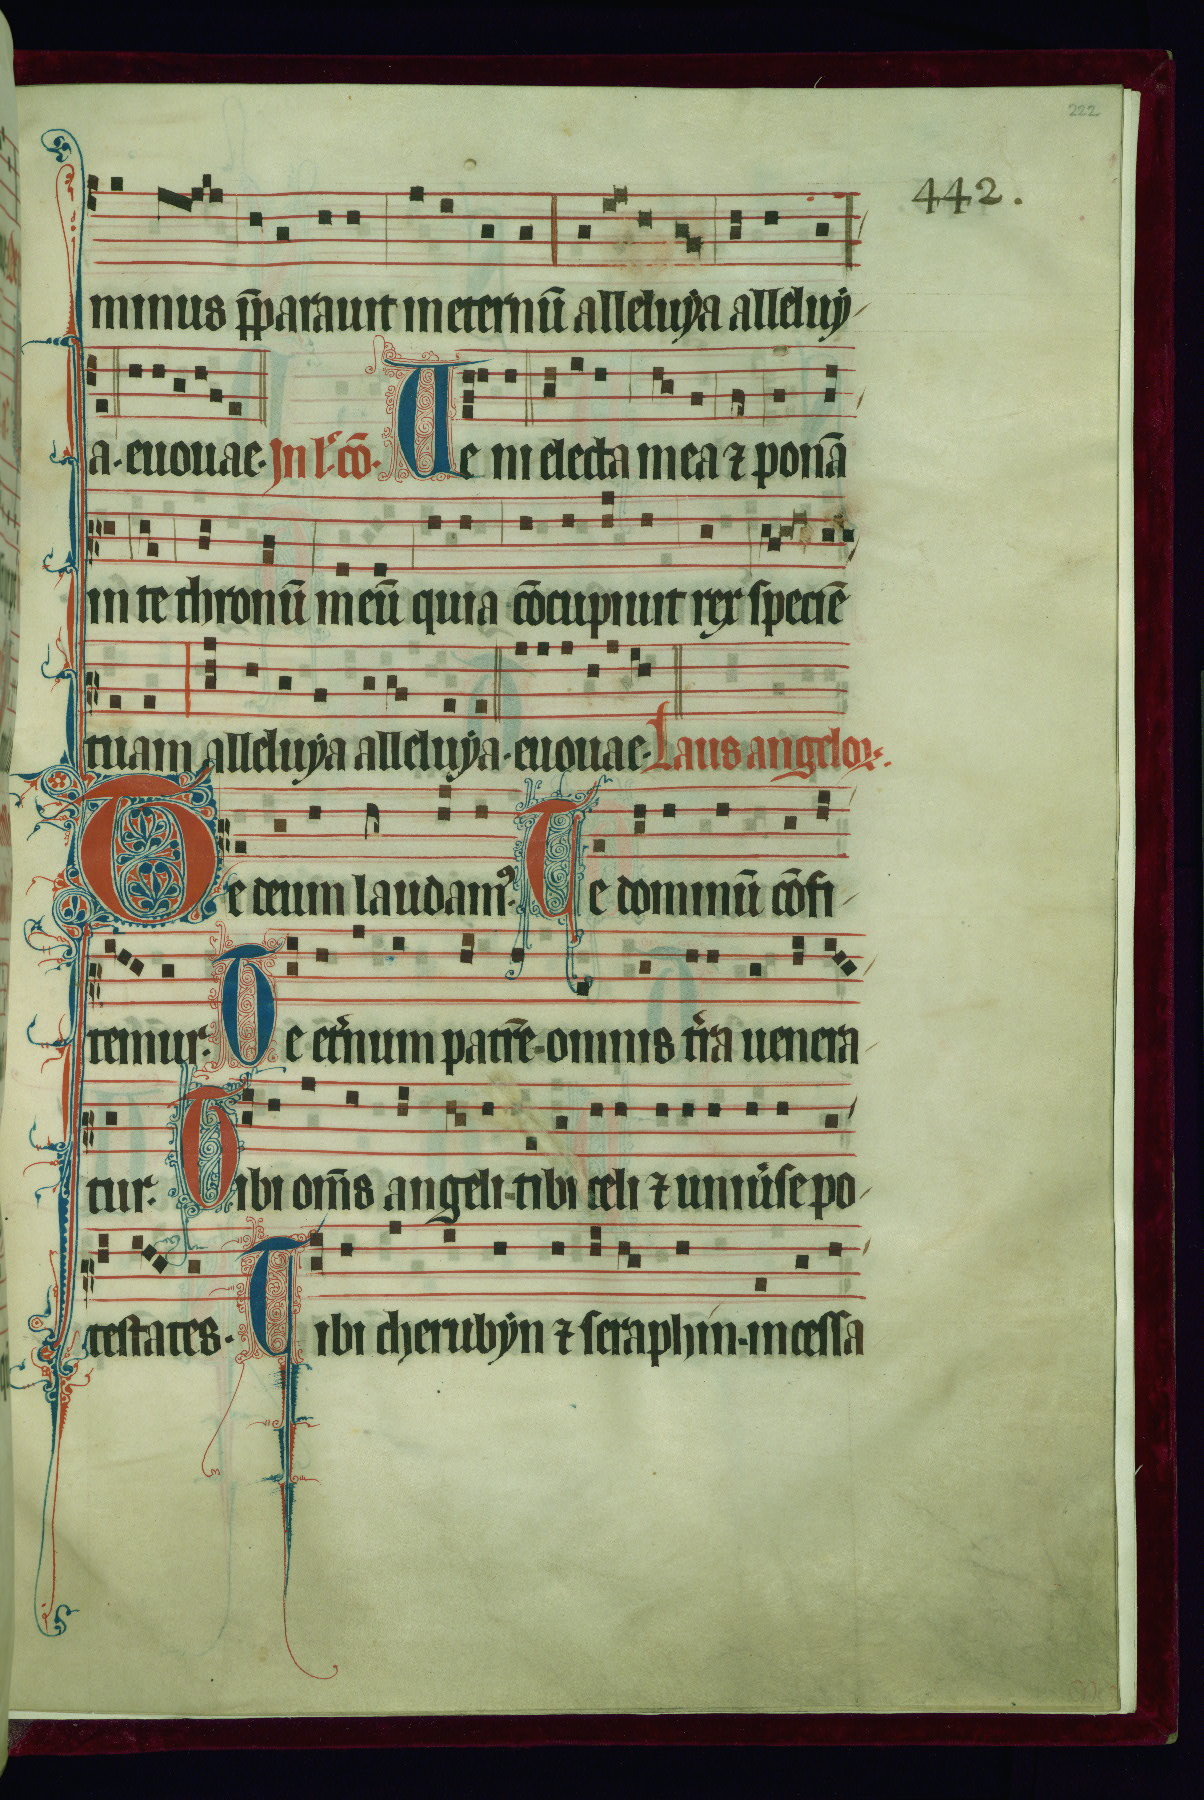 222
442.
minus p̄parauit in eternū alleluya alleluy
a. euouae. Jn l'. cō. Ueni electa mea ⁊ ponā
in te thronū meū quia cōcupiuit rex speciē
tuam alleluya alleluya. euouae. Laus angeloꝝ.
Te deum laudamꝰ. Te dominū cōfi
temur. Te et̓num patrē. omnis tr̓a uenera
tur. Tibi om̄s angeli. tibi celi ⁊ uniu̓se po
testates. Tibi cherubyn ⁊ seraphin. incessa